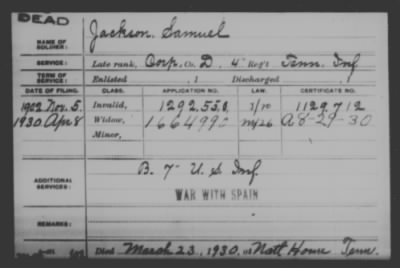 DEAD
NAME OF SOLDIER: Jackson, Samuel
SERVICE: Late rank, Corp. Co. D, 4" Reg't Tenn. Inf.
TERM OF SERVICE: Enlisted , 1 Discharged , 1
DATE OF FILING. CLASS. APPLICATION NO. LAW. CERTIFICATE NO.
1902 Nov. 5. Invalid, 1292558 1129712
1930 Apr 8 Widow, 1664990 My26 A 8-29-30
Minor,
ADDITIONAL SERVICES: B. 7" U. S. Inf.
WAR WITH SPAIN
REMARKS:
Died March 23, 1930, at Natl Home Tenn.